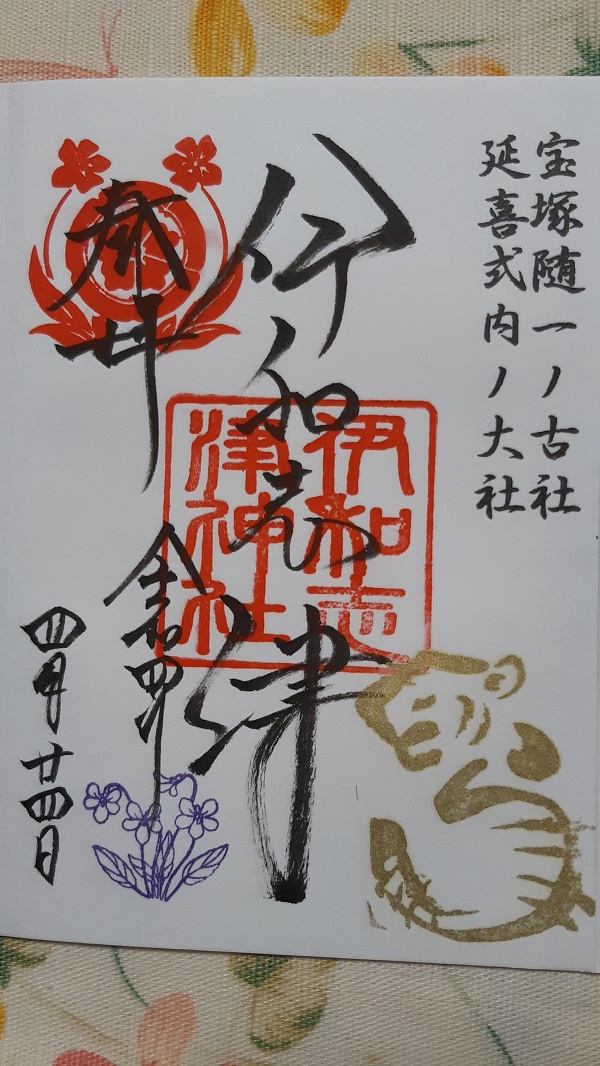 宝塚随一ノ古社
延喜式内ノ大社
伊和志津
伊和志
津神社
奉拝
令和四年
四月廿四日